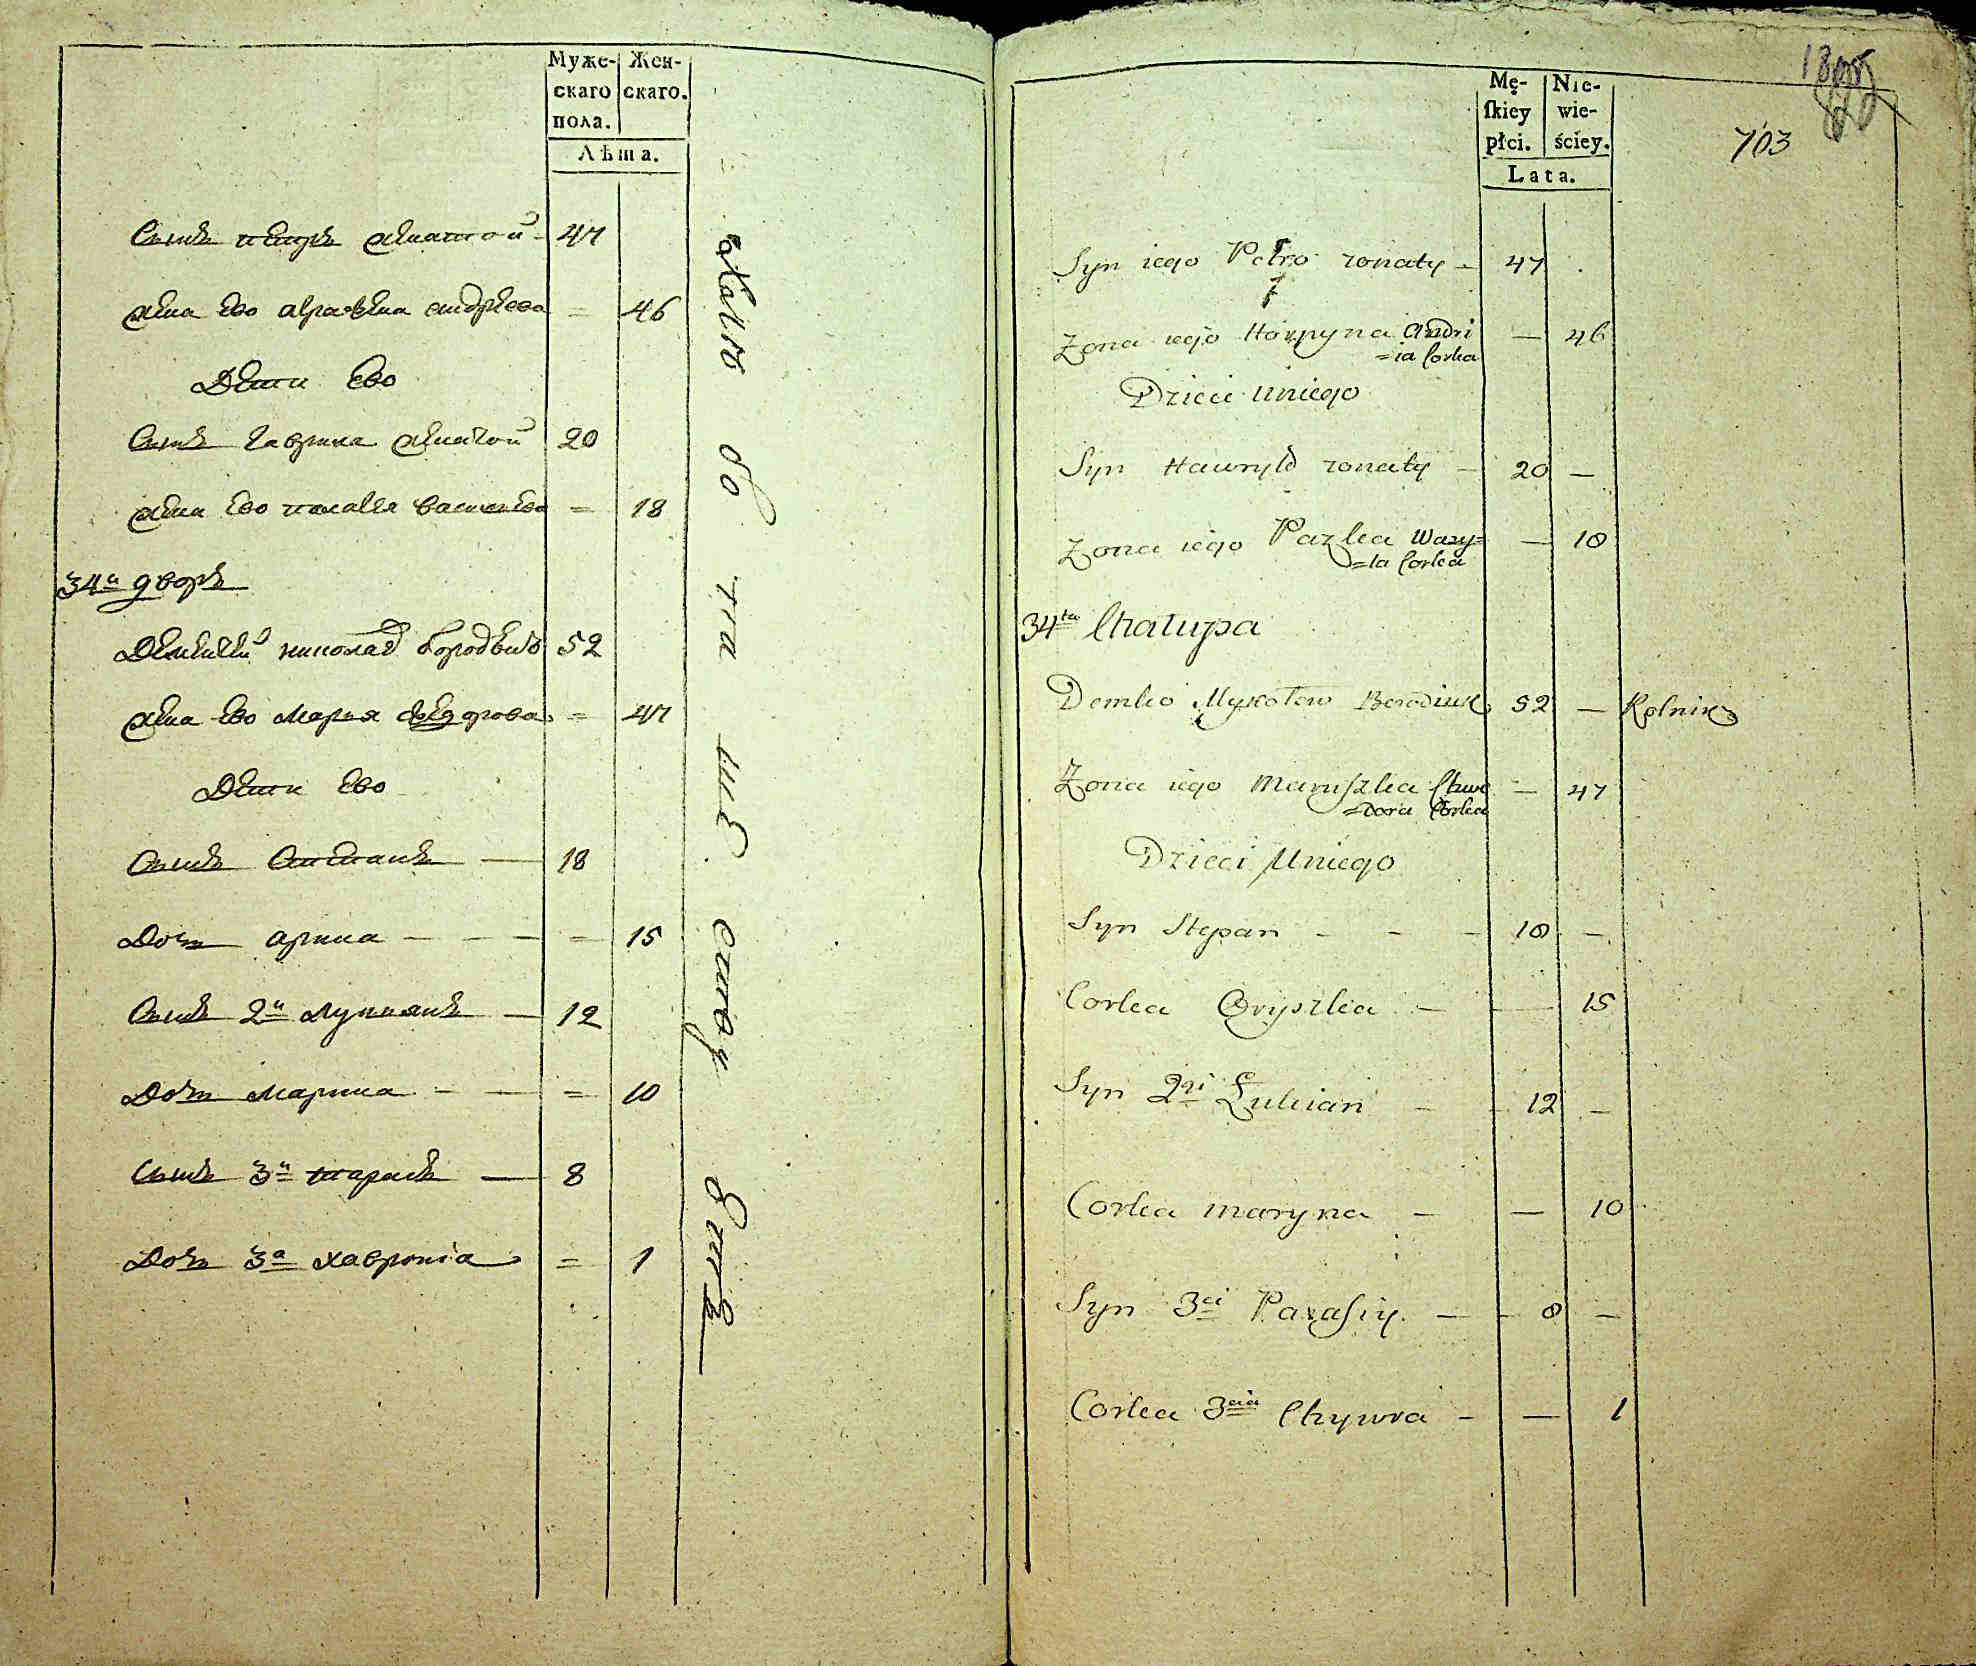 Муже-
скаго
пола.
Жен-
скаго.
Лѣта.
Сынъ петръ женатой 47
жена ево аграфена андрѣева = 46
Дети ево
Сынъ гаврила женатой 20
жена ево пелагея васильева = 18
34й дворъ
Дементей николаев бородюкъ 52
жена ево Марья федорова = 47
Дети ево
Сынъ Степанъ — 18
Дочь арина — — — = 15
Сынъ 2й лукиянъ — 12
Дочь марина — — = 10
Сынъ 3й тарасъ — 8
Дочь 3а хавронiа = 1
Mę-
ſkiey
płci.
Nie-
wie-
ściey.
Lata.
703
Syn iego Petro zonaty — 47
Zona iego Horpyna Andri — 46
=ia Corka
Dzieci uniego
Syn Hawryło zonaty — 20 —
Zona iego Pazka Wasy= — 18
=la Corka
34ta Chałupa
Demko Mykołow Borodiuk 52 — Rolnik
Zona iego Maruszka Chwe — 47
=dora Corka
Dzieci Uniego
Syn Stepan — — — 18 —
Corka Oryszka — — 15
Syn 2gi Łukian — — 12 —
Corka maryna — — 10
Syn 3ci Tarasiy — — 8 —
Corka 3cia Chywra — — 1